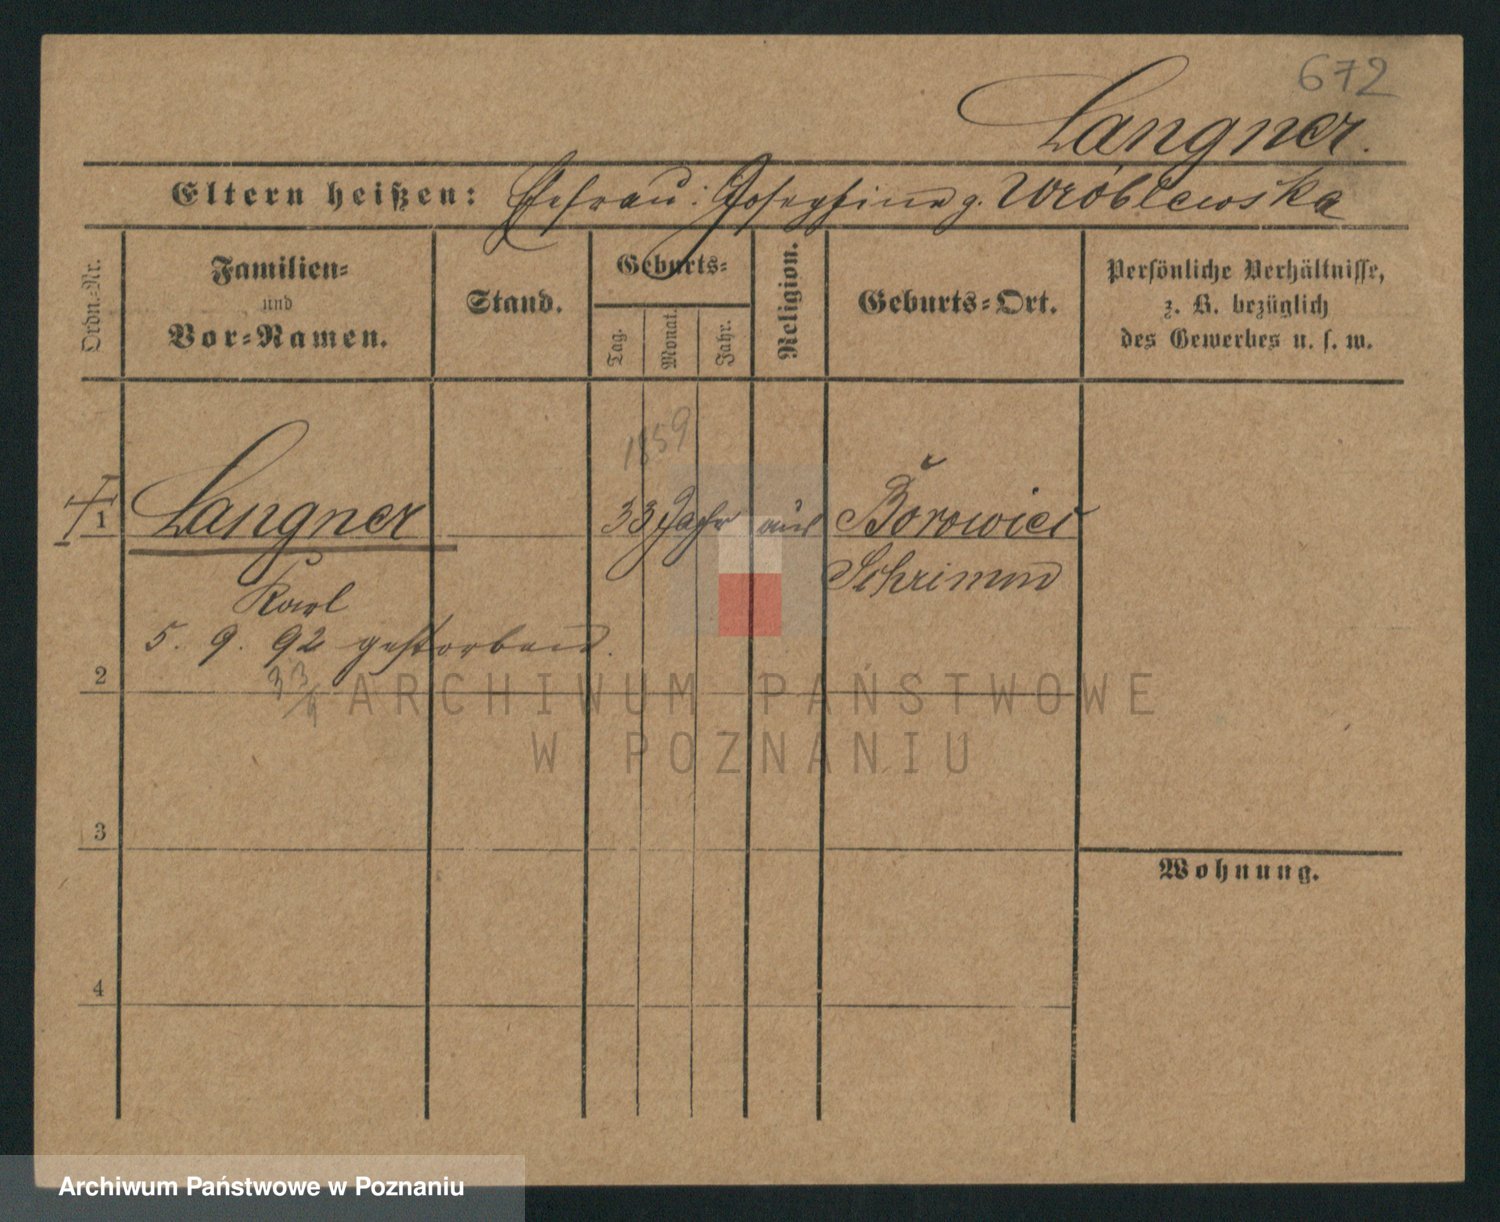 672
Langner.
Eltern heißen: Ehefrau: Josephine g. Wróblewska
Ordn.-Nr.
Familien-
und
Vor-Namen.
Stand.
Geburts-
Tag.
Monat.
Jahr.
Religion.
Geburts-Ort.
Persönliche Verhältnisse,
z. B. bezüglich
des Gewerbes u. s. w.
1859
1 Langner 33 Jahr aus Borowiec
Karl Schrimm
5. 9. 92 gestorben.
2
33/9
ARCHIWUM PAŃSTWOWE
W POZNANIU
3
Wohnung.
4
Archiwum Państwowe w Poznaniu